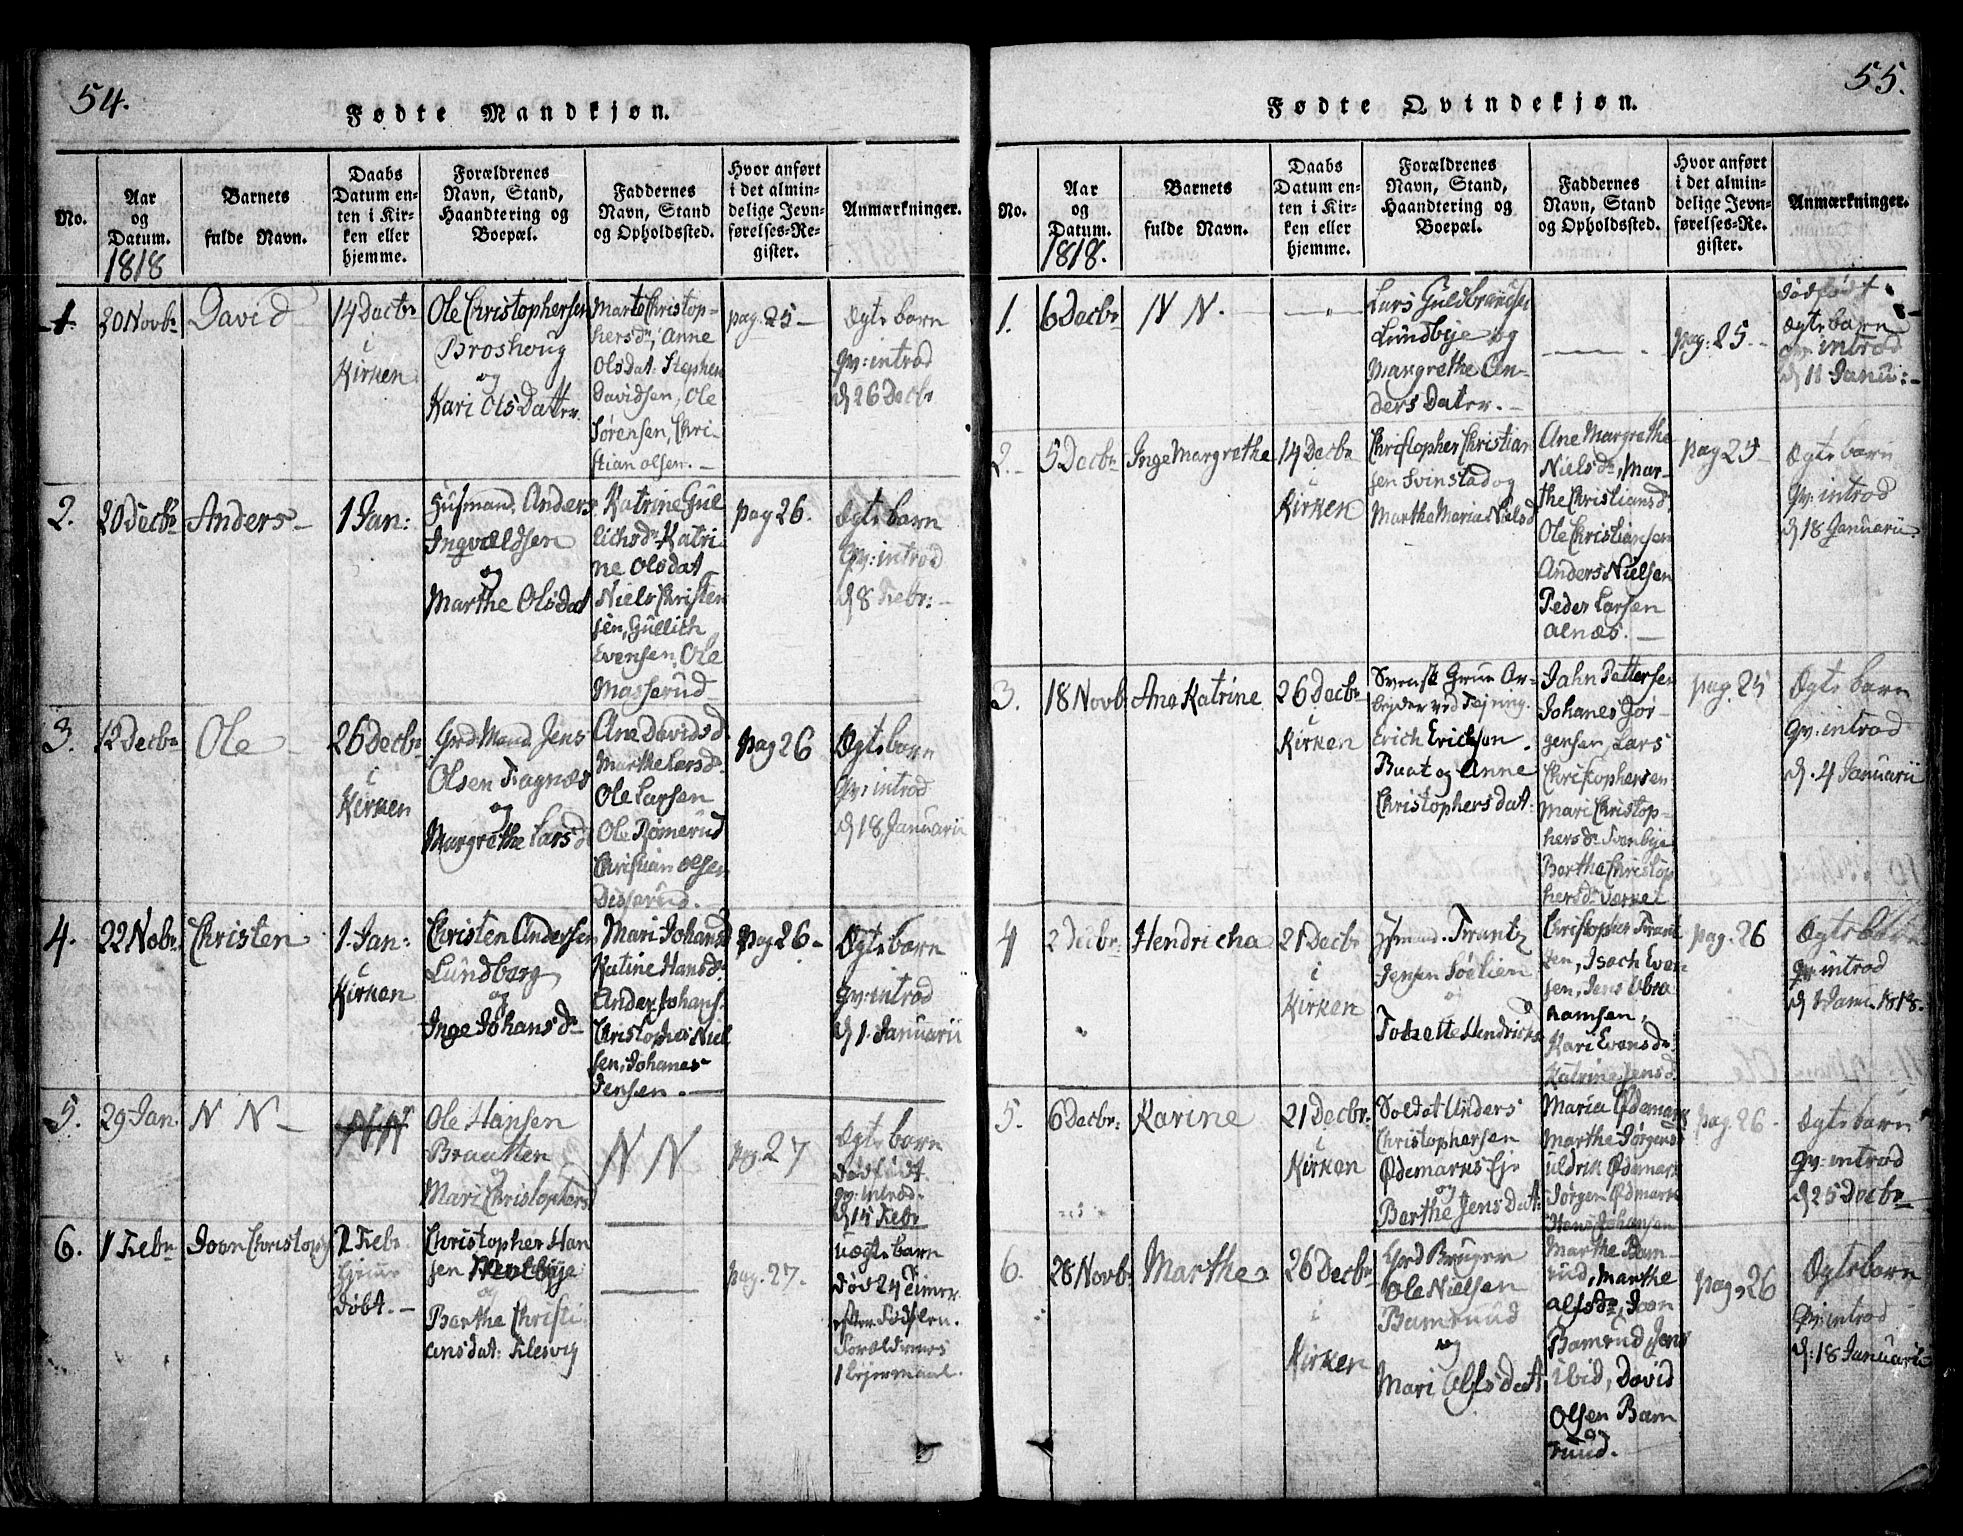 54.
Fødte Mandkjøn.
No.
Aar
og
Datum.
1818
Barnets
fulde Navn.
Daabs
Datum en-
ten i Kir-
ken eller
hjemme.
Forældrenes
Navn, Stand,
Haandtering og
Boepæl.
Faddernes
Navn, Stand
og Opholdssted.
Hvor anført
i det almin-
delige Jevn-
førelses-Re-
gister.
Anmærkninger.
1.
20 Novbr
David
14 Decbr
i
Kirken
Ole Christophersen
Broshoug
og
Kari Olsdatter
Marte Christop-
hersdr, Anne
Olsdat: Stephen
Davidsen, Ole
Sørensen, Chri-
stian Olsen.
pag. 25
Ægte barn
Qv: introd
d 26 Decbr
2.
20 Decbr
Anders
1 Jan:
Husmand Anders
Ingvaldsen
og
Marthe Olsdat
Katrine Gul
lichsdr Katri-
ne Olsdat
Niels Christen
sen, Gullich
Evensen, Ole
Masserud
pag 26.
Ægte barn
Qv: introd
d 8 Febr:
3.
12 Decbr
Ole
26 Decbr
i
Kirken
Grd Mand Jens
Olsen Fragnæs
og
Margrethe Larsd
Ane Davidsd
Marthe Larsd.
Ole Larsen
Ole Rømerud
Christian Olsen
Disserud.
pag 26
Ægte barn
Qv: introd
d 18 Januarii
4.
22 Nobr.
Christen
1. Jan:
i
Kirken
Christen Andersen
Lundborg
og
Inge Johansdr
Mari Johansd
Katine Hansdr
Ander Johans.
Christopher Niel
sen, Johanes
Jensen.
pag 26.
Ægte barn
Qv: introd
d 1. Januarii
5.
29 Jan.
N N
NN
Ole Hansen
Braatten
og
Mari Christophers
N N
pg. 27
Ægte barn
dødfødt.
qv: introd.
d 15 Febr
6.
1 Febr
Joen Christoph
2 Febr
hjeme
døbt.
Christopher Han
sen
og
Berthe Christi
ansdat: Klesvig
pag. 27.
Uægte barn
død 24 Timer
efter Fødslen.
Forældrenes
1 Lejermaal.
55.
Fødte Qvindekjøn.
No.
Aar
og
Datum.
1818.
Barnets
fulde Navn.
Daabs
Datum en-
ten i Kir-
ken eller
hjemme.
Forældrenes
Navn, Stand,
Haandtering og
Boepæl.
Faddernes
Navn, Stand
og Opholdssted.
Hvor anført
i det almin-
delige Jevn-
førelses-Re-
gister.
Anmærkninger.
1.
6 Decbr
N N.
Lars Guldbrandsen
Lundbye og
Margrethe An-
ders Dater.
pag: 25
dødfødt
Ægte barn
qv: introd
d 11 Janu:
2.
5 Decbr
Inge Margrethe
14 Decbr
i
Kirken
Christopher Christian
sen Svinstad og
Marthe Maria Nielsd
Ane Margrethe
Nielsdr, Mar-
the Christiansd.
Ole Christiansen
Anders Nielsen
Peder Larsen
Alnæs.
pag 25
Ægte barn
Qv: introd
d 18 Januarii
3.
18 Novbr
Ane Katrine
26 Decbr
i
Kirken
Svensk Grue Ar-
bejder ved Tejning
Erich Erichsen
Buat og Anne
Christophersdat:
Jahn Pettersen
Johanes Jør-
gensen, Lars
Christophersen
Mari Christop-
hersdr Svenbye
Berthe Christop
hersdr Værket
pag. 25
Ægte barn
Qv: introd
d. 4 Januarii
4
2 Decbr.
Hendricha
21 Decbr
i
Kirken
Husmand Frantz
Jensen Sølien
og
Hendrichs
Christopher Frant
zen, Isach Even
sen, Jens Abra
hamsen,
Kari Evensdr
Katrine Jensd.
pag. 26
Ægte barn
Qv: introd
d 1 Janu. 1818.
5.
6 Decbr:
Karine
21 Decbr:
i
Kirken
Soldat Anders
Christophersen
Ødemarks Eje
og
Berthe Jensdat:
Maria Ødemark
Marthe Jørgensd
Uldrik Ødemark
Jørgen Ødmark
Hans Johansen
pag. 26.
Ægte barn
Qv: introd
d 25 Decbr
6.
28 Novbr
Marthe
26 Decbr
i
Kirken
Grd Bruger
Ole Nielsen
Bamruud
og
Mari Alfsdat
Marthe Bam
rud, Marthe
Alfsdr, Joen
Bamrud, Jens
ibid, David
Olsen Bam
ruud.
pag. 26
Ægte barn
Qv: introd
d: 18 Januarii